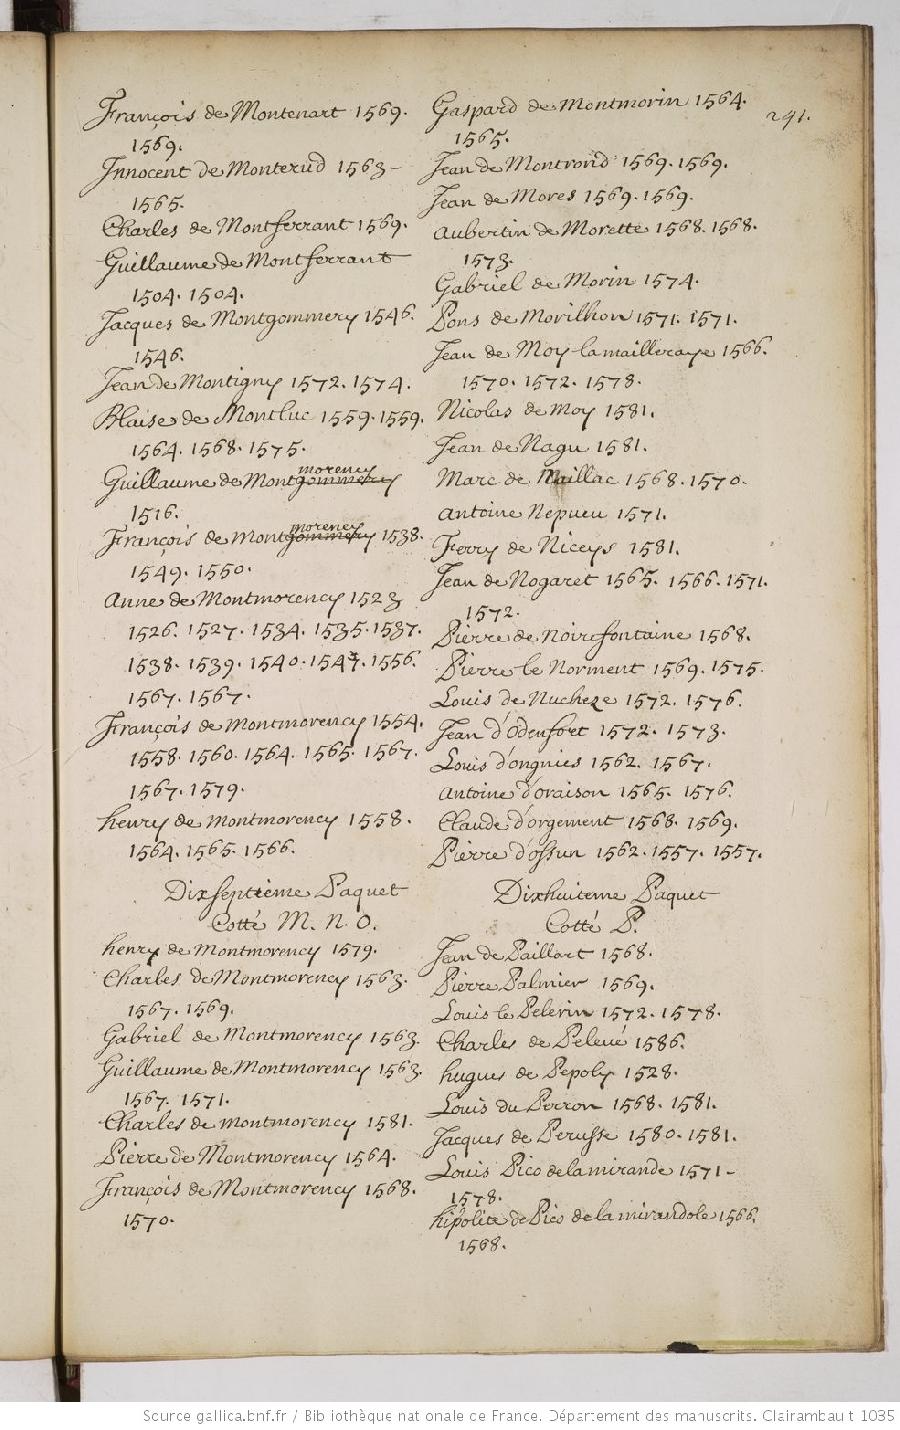 François de Montenart 1569.
1569.
Innocent de Monterud 1563 -
1565.
Charles de Montferrant 1569.
Guillaume de Montferrant
1504. 1504.
Jacques de Montgommery 1546.
1546.
Jean de Montigny 1572. 1574.
Blaise de Montluc 1559. 1559.
1564. 1568. 1575.
morency
Guillaume de Montgommery
1516.
morency
François de Montgommery 1538.
1549. 1550.
Anne de Montmorency 1523
1526. 1527. 1534. 1535. 1537.
1538. 1539. 1540. 1547. 1556.
1567. 1567.
François de Montmorency 1554.
1558. 1560. 1564. 1565. 1567.
1567. 1579.
henry de Montmorency 1558.
1564. 1565. 1566.
Dixseptieme Paquet
Cotté M. N. O.
henry de Montmorency 1579.
Charles de Montmorency 1563.
1567. 1569.
Gabriel de Montmorency 1563.
Guillaume de Montmorency 1563.
1567. 1571.
Charles de montmorency 1581.
Pierre de Montmorency 1564.
François de Montmorency 1568.
1570.
241.
Gaspard de Montmorin 1564.
1565.
Jean de Montrond 1569. 1569.
Jean de Mores 1569. 1569.
Aubertin de Morette 1568. 1568.
1573.
Gabriel de Morin 1574.
Pons de Morilhon 1571. 1571.
Jean de Moy-lamailleraye 1566.
1570. 1572. 1578.
Nicolas de Moy 1581.
Jean de Nagu 1581.
Marc de Naillac 1568. 1570.
Antoine Nepueu 1571.
Ferry de Niceys 1581.
Jean de Nogaret 1565. 1566. 1571.
1572.
Pierre de Noirefontaine 1568.
Pierre le Norment 1569. 1575.
Louis de Nucheze 1572. 1576.
Jean d'Odenfort 1572. 1573.
Louis d'ongnies 1562. 1567.
Antoine d'oraison 1565. 1576.
Claude d'orgement 1568. 1569.
Pierre d'ossun 1562. 1557. 1557.
Dixhuiteme Paquet
Cotté P.
Jean de Paillart 1568.
Pierre Palmier 1569.
Louis le Pelerin 1572. 1578.
Charles de Peleué 1586.
hugues de Pepoly 1528.
Louis du Perron 1568. 1581.
Jacques de Perusse 1580. 1581.
Louis Pico de la mirande 1571 -
1578.
hipolite de Pico de la mirandole 1566.
1568.
Source gallica.bnf.fr / Bibliothèque nationale de France. Département des manuscrits. Clairambault 1035